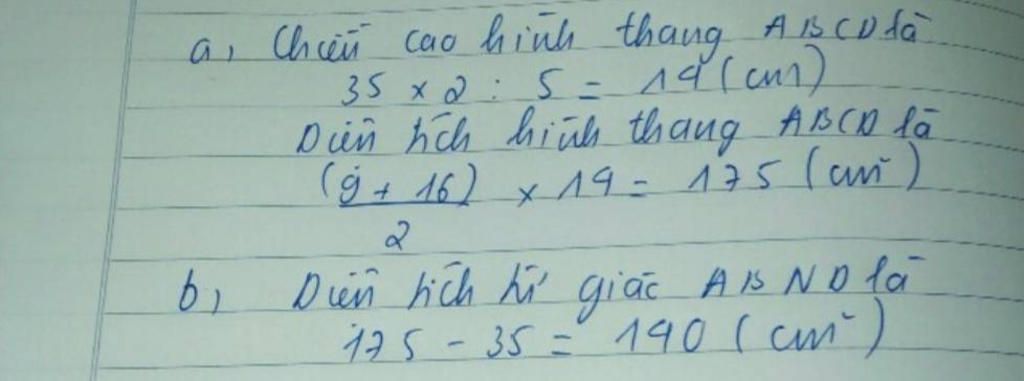 a, Chiều cao hình thang ABCD là
35 x 2 : 5 = 14 (cm)
Diện tích hình thang ABCD là
(9 + 16) / 2 x 14 = 175 (cm²)
b, Diện tích tứ giác ABND là
175 - 35 = 140 (cm²)